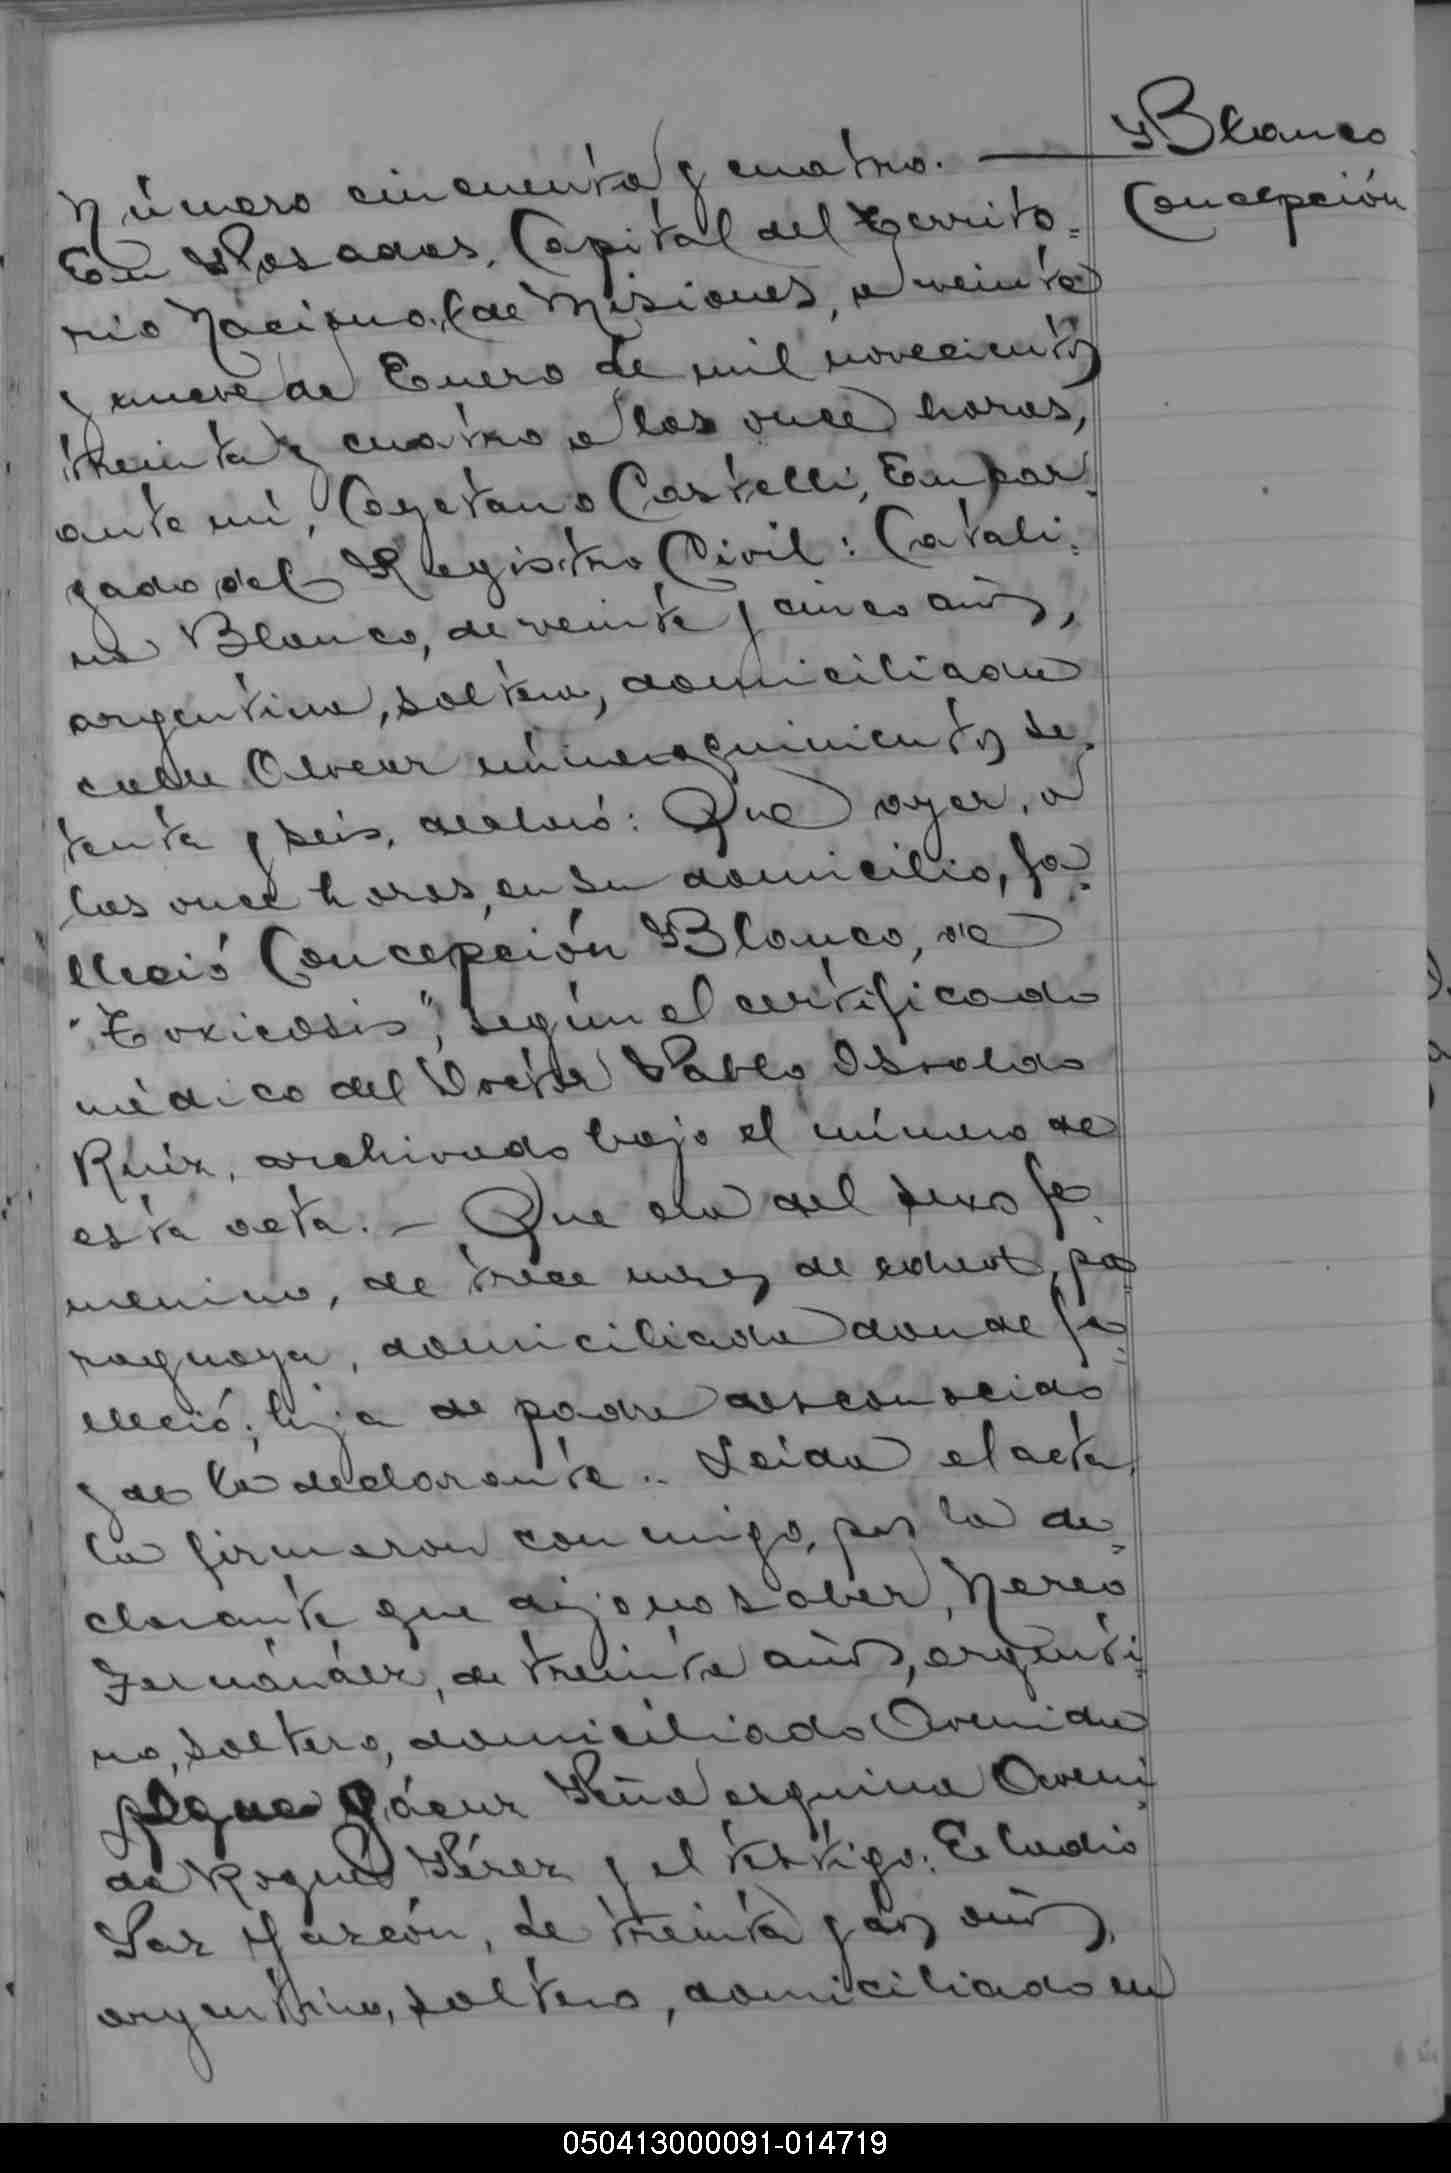 Blanco
Concepción
Número cincuenta y cuatro.
En Posadas, Capital del Territo=
rio Nacional de Misiones, a veinte
y nueve de Enero de mil novecientos
treinta y cuatro a las once horas,
ante mí, Cayetano Castelli, Encar=
gado del Registro Civil: Catali=
na Blanco, de veinte y cinco años,
argentina, soltera, domiciliada
calle Alvear número quinientos se=
tenta y seis, declaró: Que ayer, a
las once horas, en su domicilio, fa=
lleció Concepción Blanco, de
"Toxicosis", según el certificado
médico del Doctor Pablo Osvaldo
Ruiz, archivado bajo el número de
esta acta. - Que era del sexo fe=
menino, de trece meses de edad, pa=
raguaya, domiciliada donde fa=
lleció; hija de padre desconocido
y de la declarante.. Leída el acta,
la firmaron conmigo, por la de=
clarante que dijo no saber, Nereo
Fernández, de treinta años, argenti=
no, soltero, domiciliado Avenida
Sáenz Peña esquina Aveni=
da Roque Pérez y el testigo:
de treinta y dos años,
argentino, soltero, domiciliado en
050413000091-014719